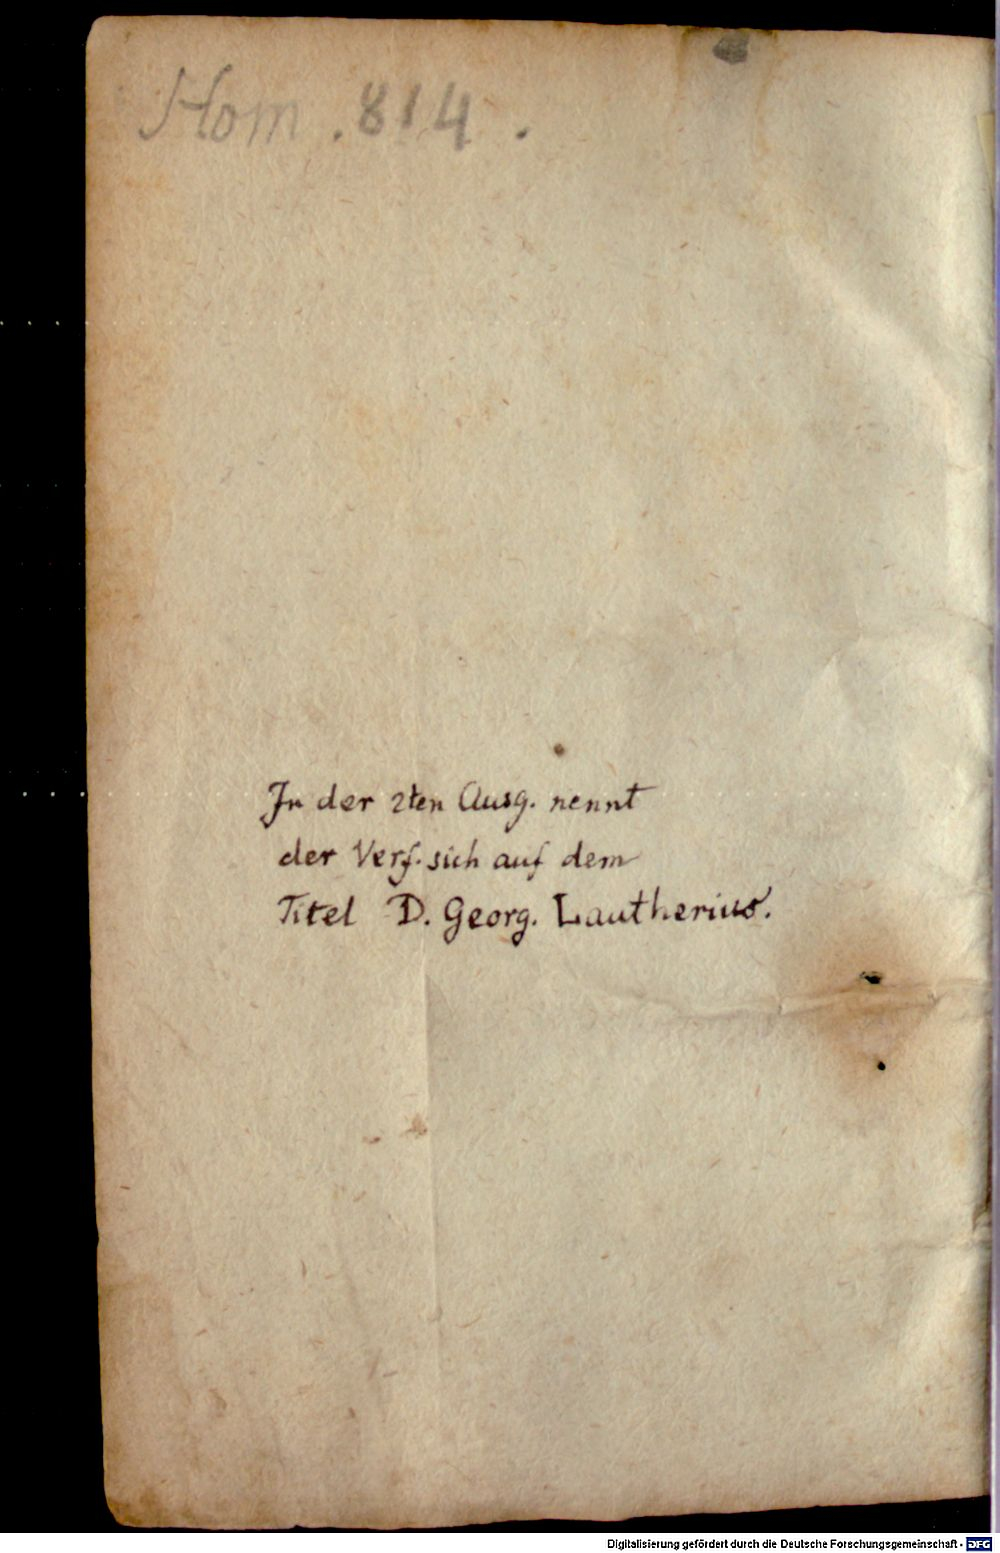 Hom. 814.
In der 2ten Ausg. nennt
der Verf. sich auf dem
Titel D. Georg. Lautherius.
Digitalisierung gefördert durch die Deutsche Forschungsgemeinschaft - DFG